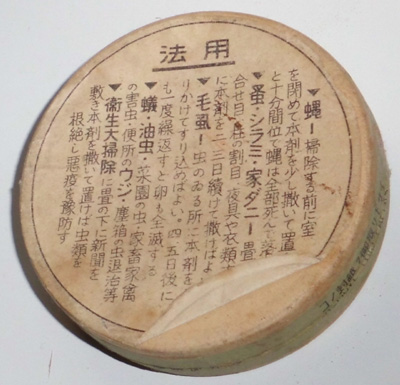 用法
▼蠅ー掃除する前に室
を閉めて本剤を少し撒いて置
と十分間位で蠅は全部死んで落
▼蚤・シラミ・家ダニー畳
合せ目・柱の割目・夜具や衣類
に本剤を二、三日続けて撒けばよ
▼毛虱ー虫のゐる所に本剤を
りかけてすり込めばよい・四五日後に
も一度繰返すと卵も全滅する
▼蟻・油虫・菜園の虫・家畜家禽
の害虫・便所のウジ・塵箱の虫退治等
▼衛生大掃除に畳の下に新聞を
敷き本剤を撒いて置けば虫類を
根絶し惡疫を豫防す